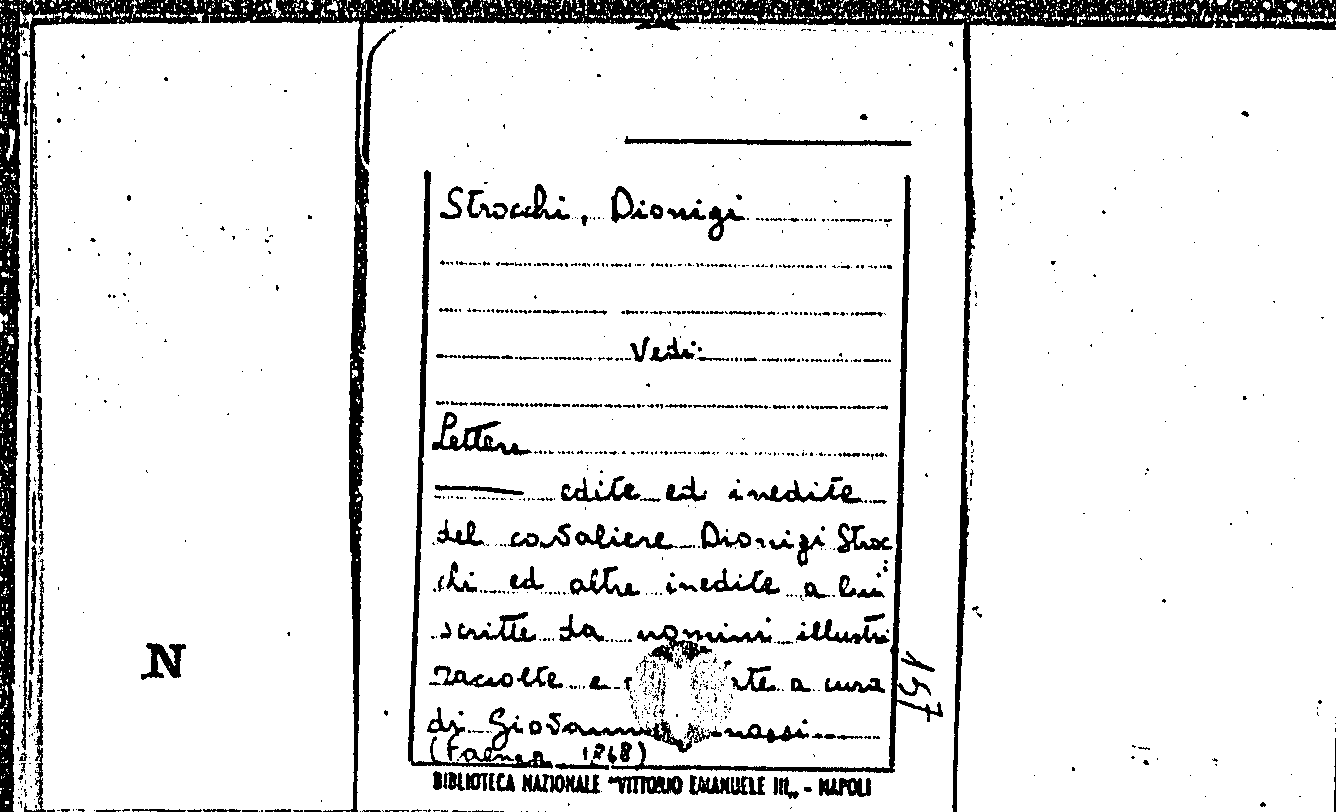 Strocchi, Dionigi
Vedi:
Lettere
edite ed inedite
del cavaliere Dionigi Stroc
chi ed altre inedite a lui
scritte da uomini illustri
raccolte e a cura
di
(Faenza 1868)
BIBLIOTECA NAZIONALE "VITTORIO EMANUELE III„ - NAPOLI
N
157